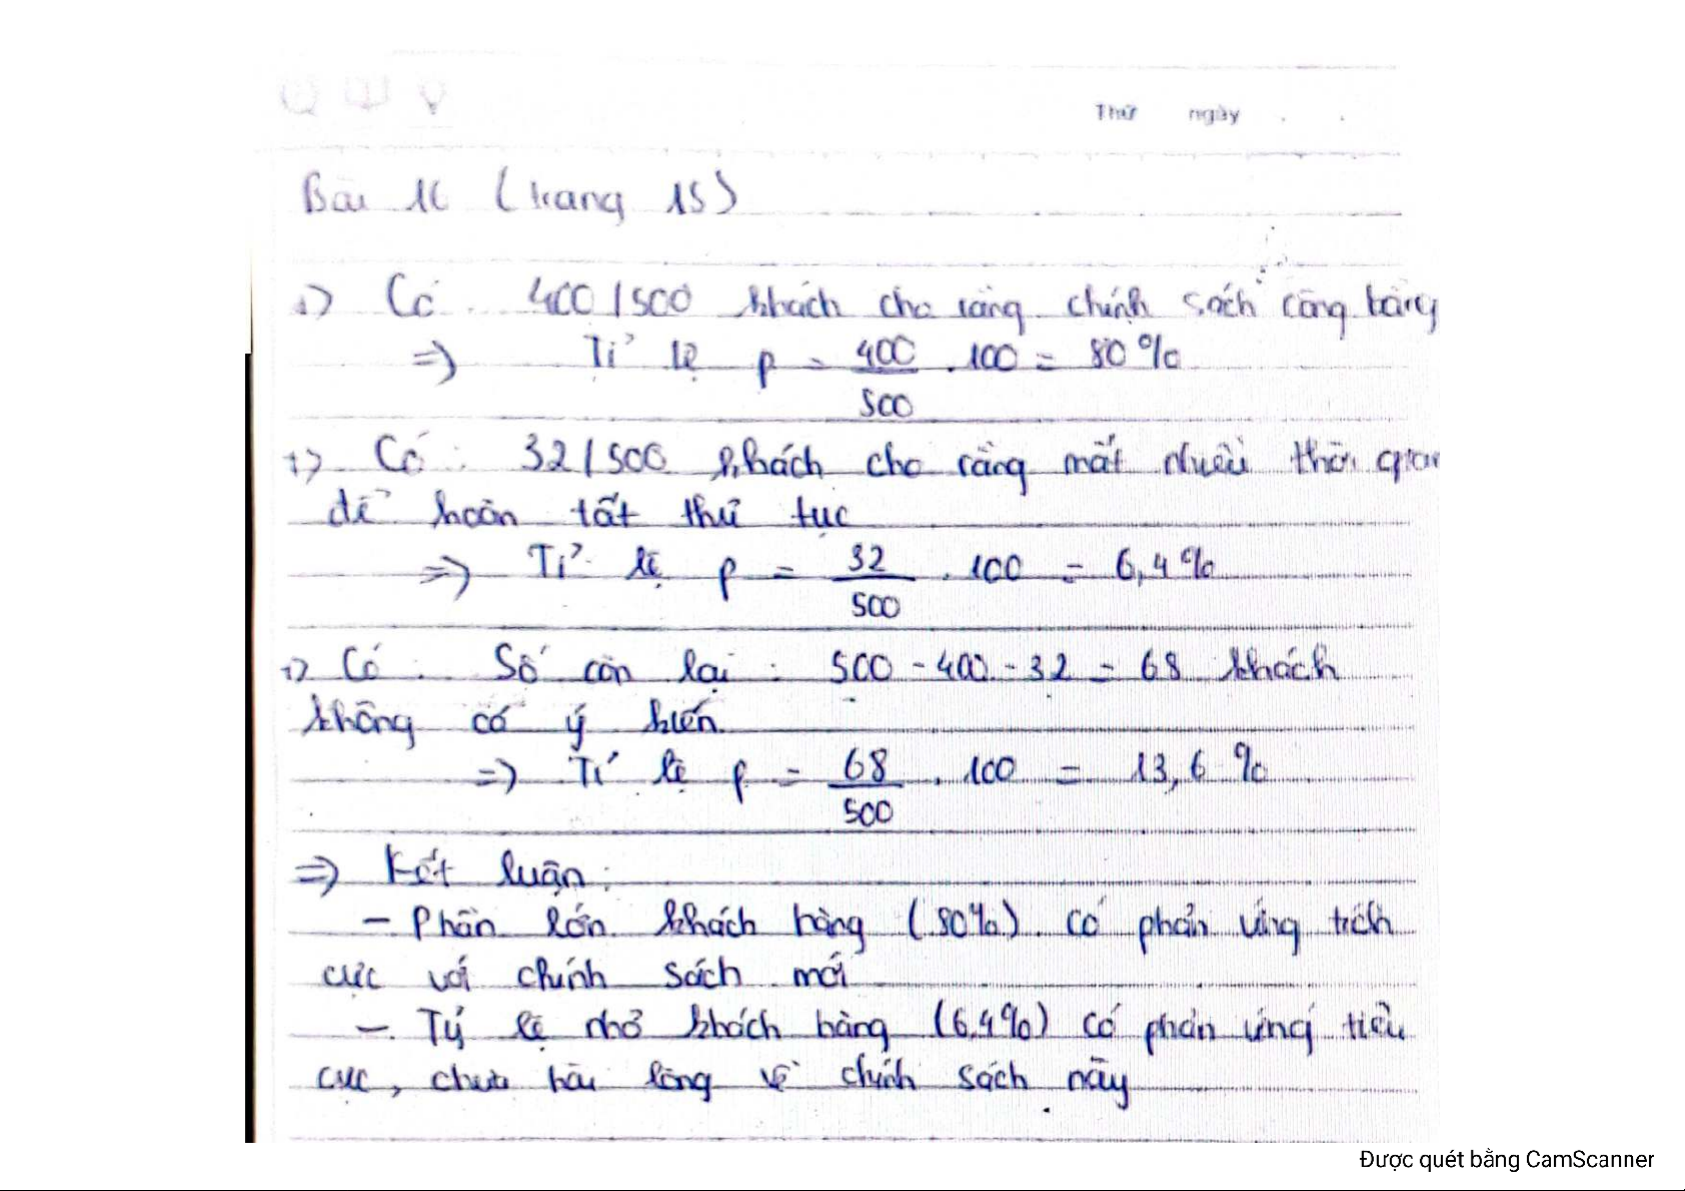 Thứ ngày . .
Bài 16 (trang 15)
+) Có : 400/500 khách cho rằng chính sách công bằng
=> Tỉ lệ p = 400/500 . 100 = 80%
+) Có : 32/500 khách cho rằng mất nhiều thời gian
để hoàn tất thủ tục
=> Tỉ lệ p = 32/500 . 100 = 6,4%
+) Có : Số còn lại : 500 - 400 - 32 = 68 khách
không có ý kiến
=> Tỉ lệ p = 68/500 . 100 = 13,6 %
=> Kết luận :
- Phần lớn khách hàng (80%) có phản ứng tích
cực với chính sách mới
- Tỷ lệ nhỏ khách hàng (6,4%) có phản ứng tiêu
cực, chưa hài lòng về chính sách này
Được quét bằng CamScanner